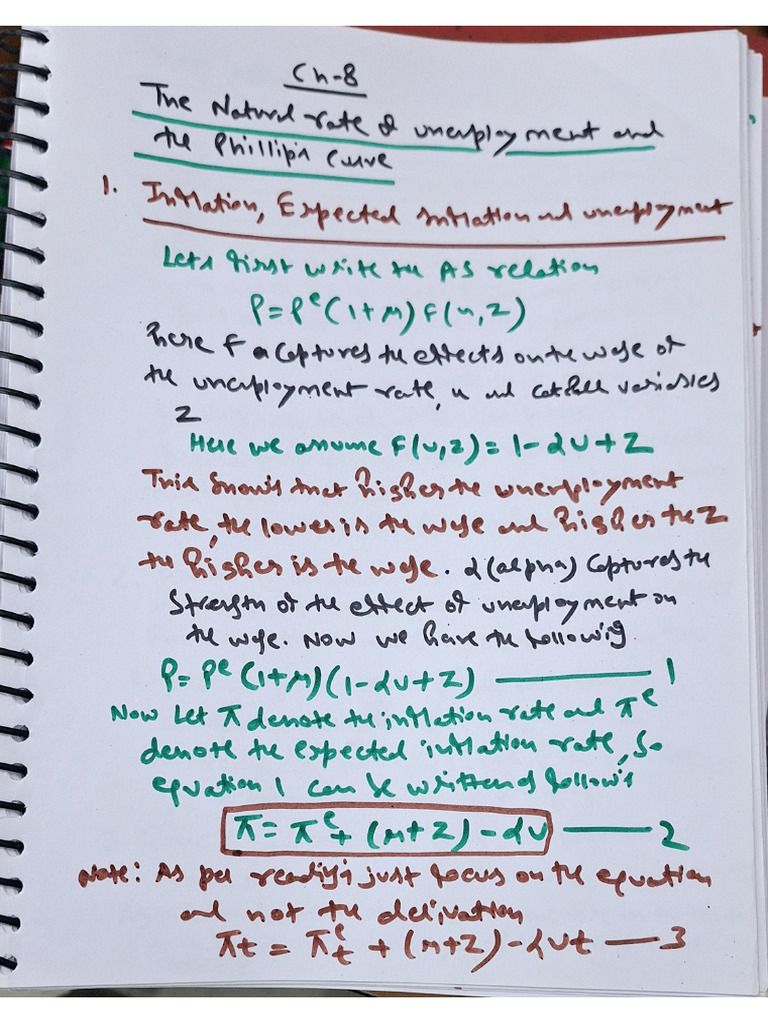 Ch-8
The Natural rate of unemployment and
the Phillips Curve
1. Inflation, Expected Inflation and unemployment
Lets first write the AS relation
P = Pᵉ(1+μ) F(u,z)
here F captures the effects on the wage of
the unemployment rate, u and catchall variables
z
Here we assume F(u,z) = 1-αu+z
This shows that higher the unemployment
rate, the lower is the wage and higher the z
the higher is the wage. α(alpha) captures the
strength of the effect of unemployment on
the wage. Now we have the following.
P = Pᵉ(1+μ)(1-αu+z) — 1
Now Let π denote the inflation rate and πᵉ
denote the expected inflation rate, so
equation 1 can be written as follows
π = πᵉ + (μ+z) - αu — 2
Note: As per readings just focus on the equation
and not the derivation
πt = πᵉt + (μ+z) - αut — 3